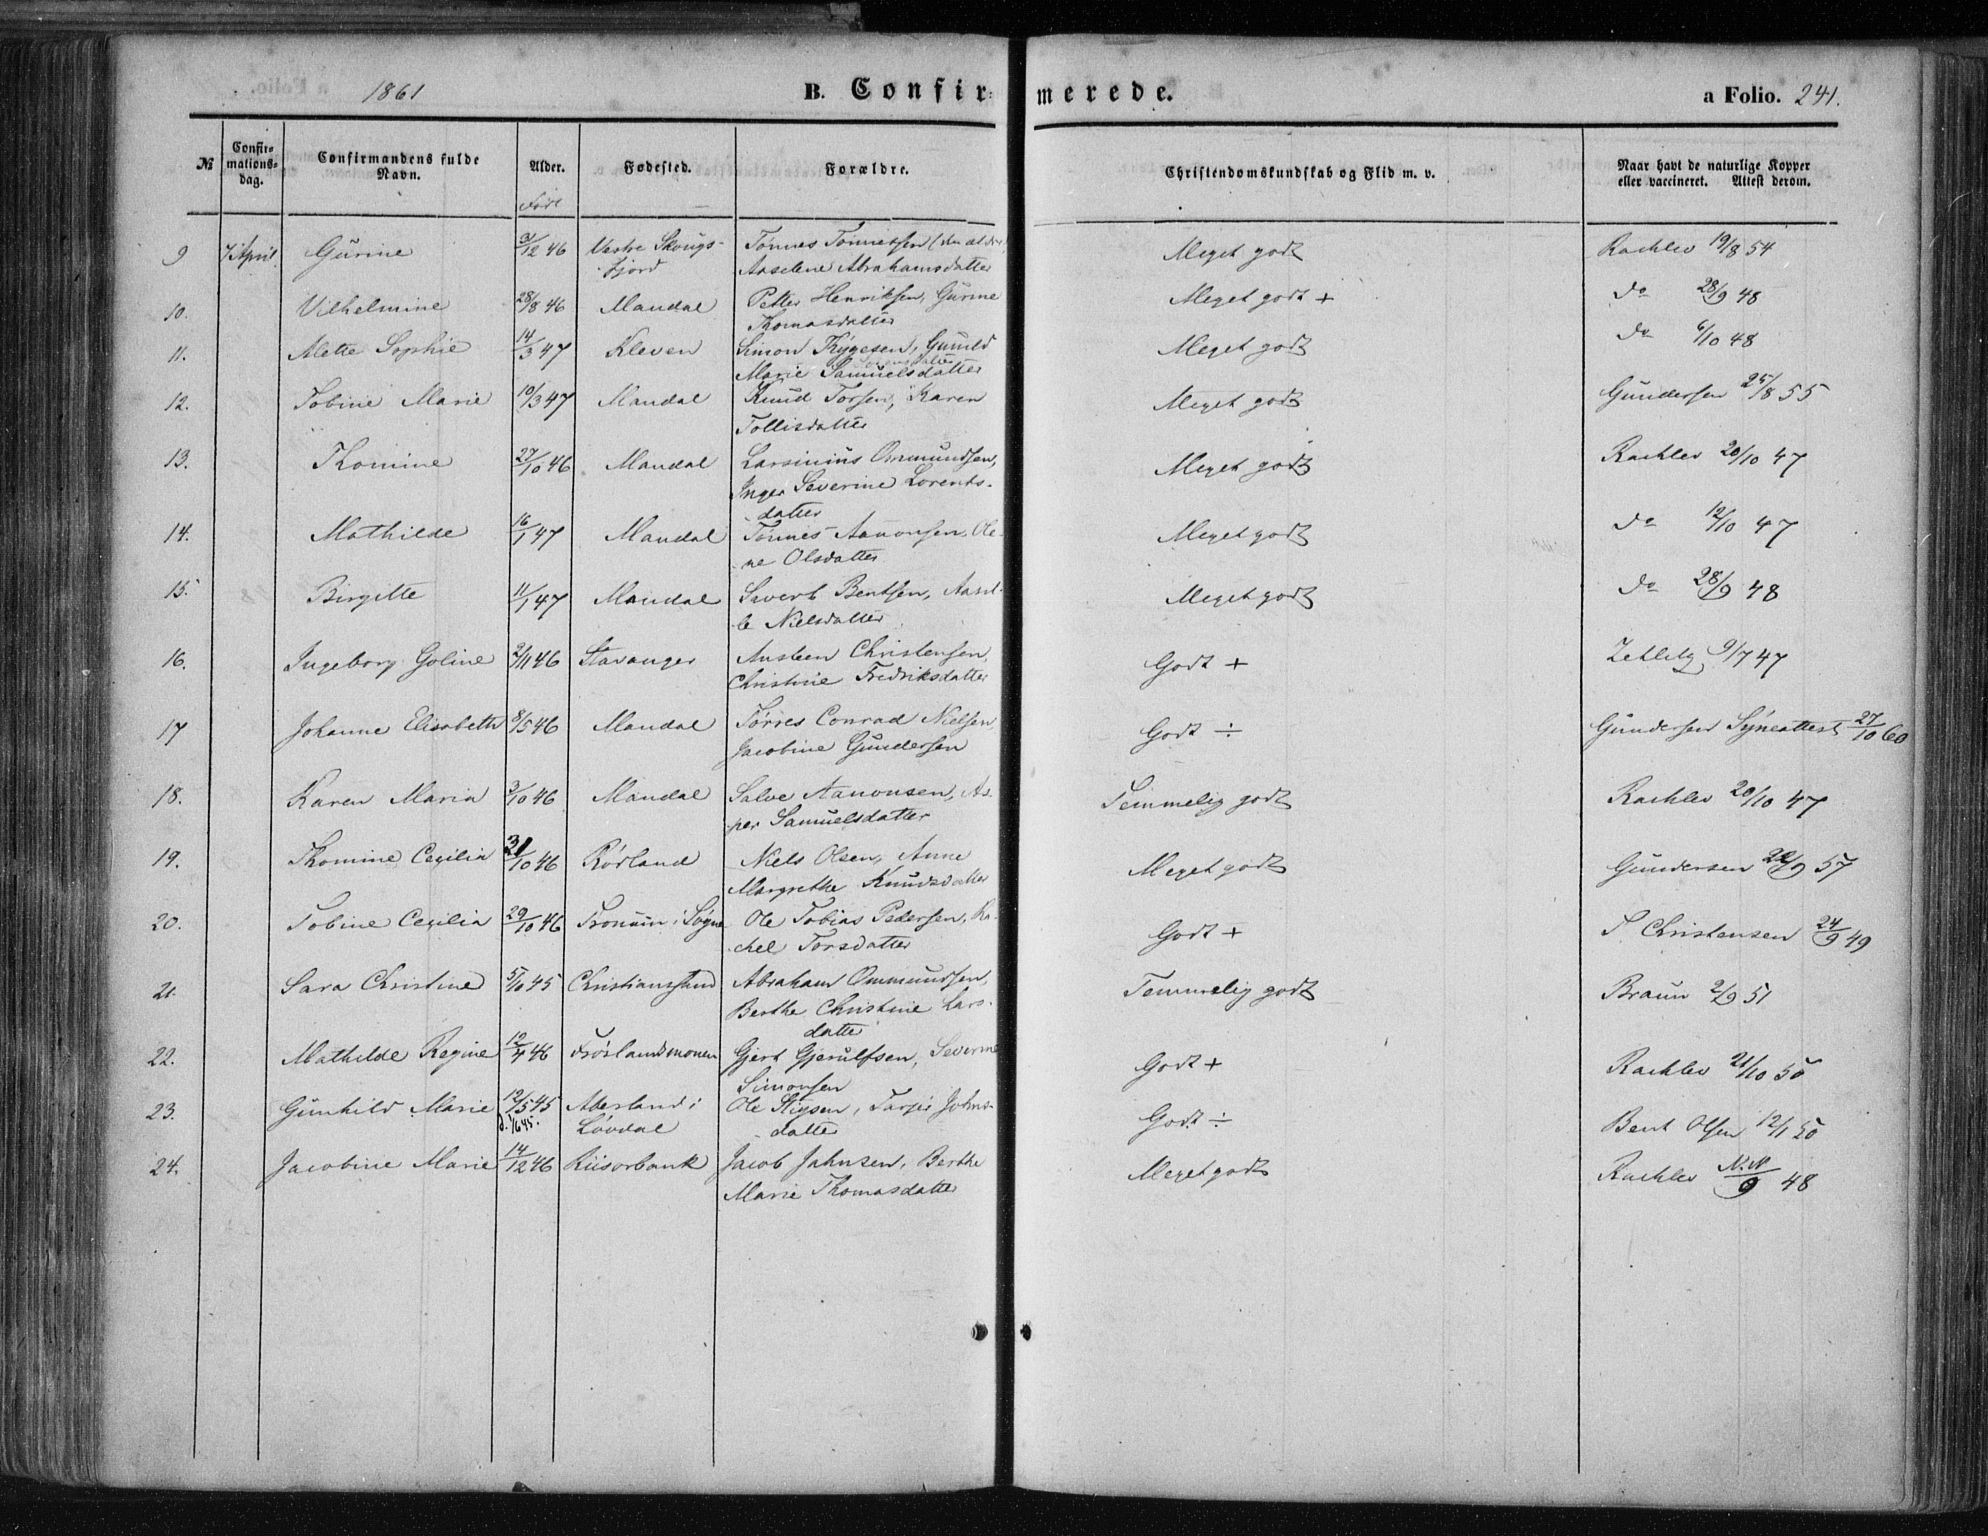 1861 B. Confirmerede. a Folio. 241.
№ Confirmationsdag. Confirmandens fulde Navn. Alder. Fødested. Forældre. Christendomskundskab og Flid m. v. Naar havt de naturlige Kopper eller vaccineret. Attest derom.
Født
9 7 April Gurine 3/12 46 Vestre Skougs- Tønnes Tønnesen (den ældre) Meget godt Rachlev 19/8 54
fjord Aaselene Abrahamsdatter
10. Vilhelmine 28/8 46 Mandal Petter Henriksen, Gurine Meget godt + do 28/9 48
Thomasdatter
11. Alette Sophie 14/3 47 Kleven Simon Trygesen, Gunild Meget godt do 6/10 48
Marie Samuelsdatter
12. Tobine Marie 10/3 47 Mandal Knud Torsen, Karen Meget godt Gundersen 25/8 55
Tollisdatter
13. Thomine 27/10 46 Mandal Larsinius Ommundsen, Meget godt Rachlev 20/10 47
Inger Severine Lorents-
datter
14. Mathilde 16/1 47 Mandal Tønnes Aanonsen, Ole- Meget godt do 12/10 47
ne Olsdatter
15. Birgitte 11/1 47 Mandal Sivert Bentsen, Aasel- Meget godt do 28/9 48
le Nielsdatter
16. Ingeborg Goline 2/11 46 Stavanger Austeen Christensen, Godt + Zetlitz 9/7 47
Christine Fredriksdatter
17 Johanne Elisabeth 8/5 46 Mandal Tørres Conrad Nielsen, Godt ÷ Gundersens Synsattest 27/10 60
Jacobine Gundersen
18. Karen Maria 3/10 46 Mandal Salve Aanonsen, As- Temmelig godt Rachlev 20/10 47
per Samuelsdatter
19. Thomine Cecilia 31/10 46 Rödland Niels Olsen, Anne Meget godt Gundersen 22/9 57
Margrethe Knudsdatter
20. Tobine Cecilia 29/10 46 Tronum i Søgne Ole Tobias Pedersen, Ra- Godt + T. Christensen 24/9 49
chel Torsdatter
21. Sara Christine 5/10 45 Christianssund Abraham Ommundsen, Temmelig godt Braun 2/9 51
Berthe Christine Lars-
datter
22. Mathilde Regine 12/4 46 Frøslandsmonen Gjert Gjerulfsen, Severine Godt + Rachlev 21/10 50
Simonsen
23. Gunhild Marie 12/5 45 Aderland i Ole Stigsen, Tarjer Johns- Godt ÷ Bent Olsen 12/1 50
d. 1/6 45. Løvdal datter
24. Jacobine Marie 14/12 46 Riisørbank Jacob Jahnsen, Berthe Meget godt Rachlev N.N/9 48
Marie Thomasdatter